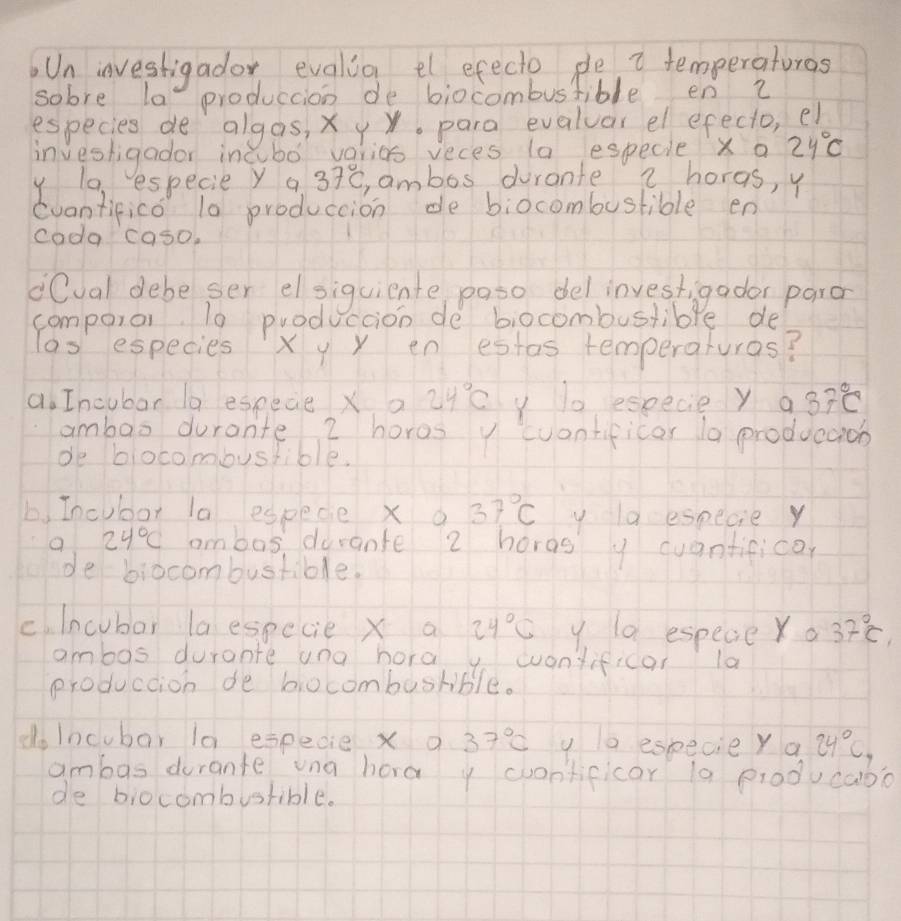 Un investigador evalúa el efecto de 2 temperaturas
sobre la producción de biocombustible en 2
especies de algas, X y Y. para evaluar el efecto, el
investigador incubó varias veces la especie X a 24°C
y la especie Y a 37°C, ambas durante 2 horas, y
cuantificó la producción de biocombustible en
cada caso.
¿Cual debe ser el siguiente paso del investigador para
comparar la producción de biocombustible de
las especies X y Y en estas temperaturas?
a. Incubar la especie X a 24°C y la especie Y a 37°C
ambas durante 2 horas y cuantificar la producción
de biocombustible.
b. Incubar la especie X a 37°C y la especie Y
a 24°C ambas durante 2 horas y cuantificar
de biocombustible.
c. Incubar la especie X a 24°C y la especie Y a 37°C,
ambas durante una hora y cuantificar la
producción de biocombustible.
d. Incubar la especie X a 37°C y la especie Y a 24°C,
ambas durante una hora y cuantificar la producción
de biocombustible.